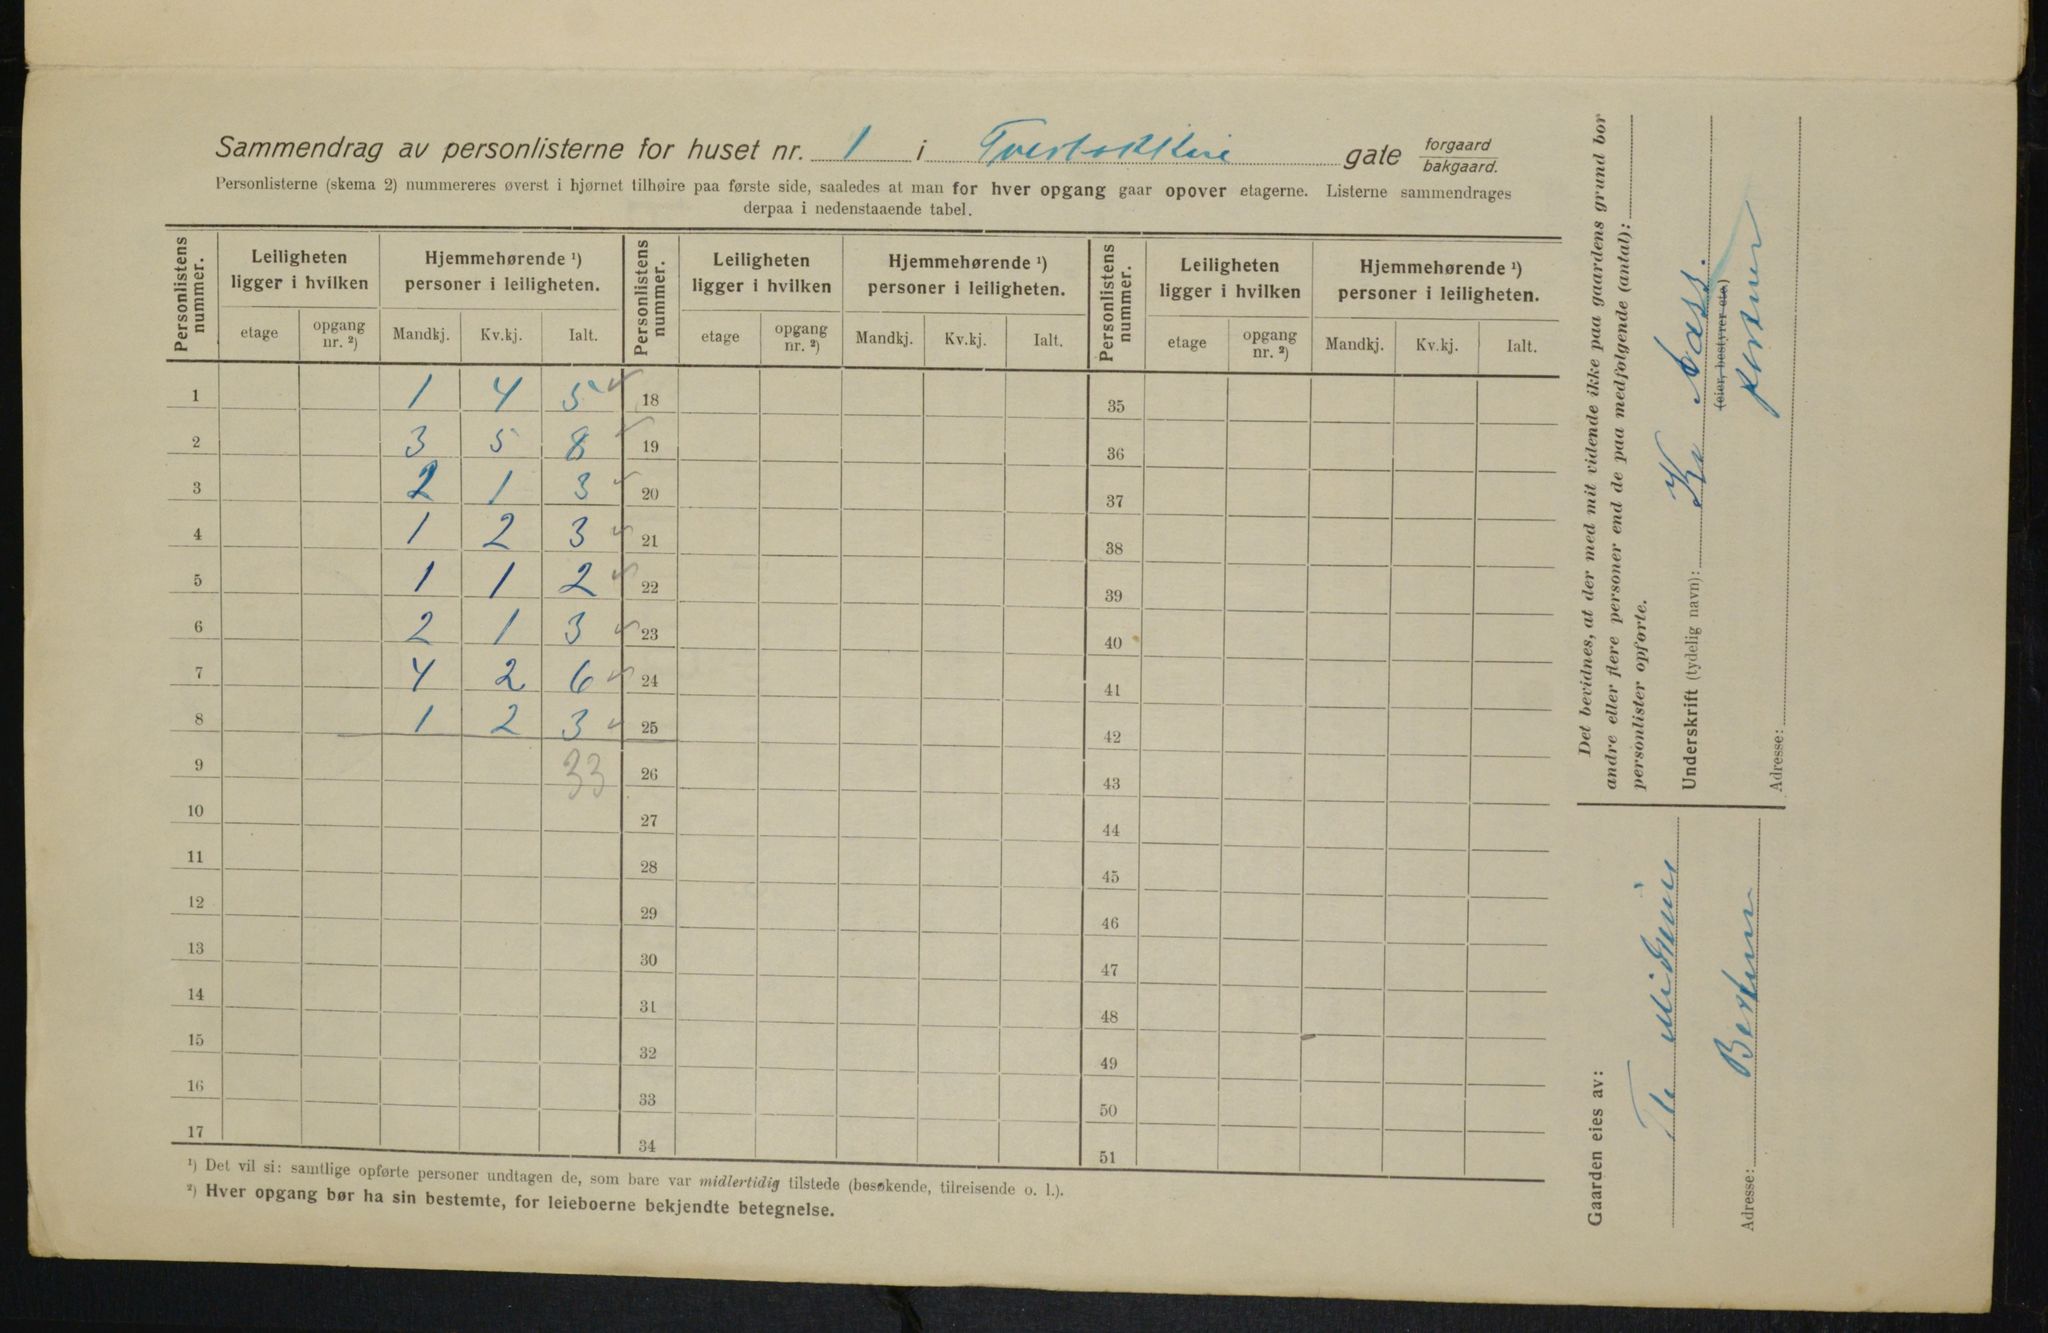 Sammendrag av personlisterne for huset nr. 1 i Tverbakkens gate forgaard bakgaard.
Personlisterne (skema 2) nummereres øverst i hjørnet tilhøire paa første side, saaledes at man for hver opgang gaar opover etagerne. Listerne sammendrages
derpaa i nedenstaaende tabel.
Personlistens nummer. Leiligheten ligger i hvilken Hjemmehørende ¹) personer i leiligheten. Personlistens nummer. Leiligheten ligger i hvilken Hjemmehørende ¹) personer i leiligheten. Personlistens nummer. Leiligheten ligger i hvilken Hjemmehørende ¹) personer i leiligheten.
etage opgang nr. ²) Mandkj. Kv.kj. Ialt. etage opgang nr. ²) Mandkj. Kv.kj. Ialt. etage opgang nr. ²) Mandkj. Kv.kj. Ialt.
1 1 4 5 18 35
2 3 5 8 19 36
3 2 1 3 20 37
4 1 2 3 21 38
5 1 1 2 22 39
6 2 1 3 23 40
7 4 2 6 24 41
8 1 2 3 25 42
9 33 26 43
10 27 44
11 28 45
12 29 46
13 30 47
14 31 48
15 32 49
16 33 50
17 34 51
¹) Det vil si: samtlige opførte personer undtagen de, som bare var midlertidig tilstede (besøkende, tilreisende o. l.).
²) Hver opgang bør ha sin bestemte, for leieboerne bekjendte betegnelse.
Det bevidnes, at der med mit vidende ikke paa gaardens grund bor
andre eller flere personer end de paa medfølgende (antal):
personlister opførte.
Underskrift (tydelig navn): Næss.
(eier, bestyrer etc.)
Adresse:
Gaarden eies av:
Adresse: